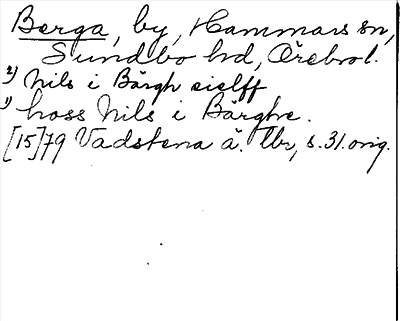 Berga, by, Hammars sn,
Sundbo hd, Örebro l.
2) Nils i Bärgh sielff
1) hoss Nils i Bärghe.
[15]79 Vadstena ä. lbr, s. 31. orig.